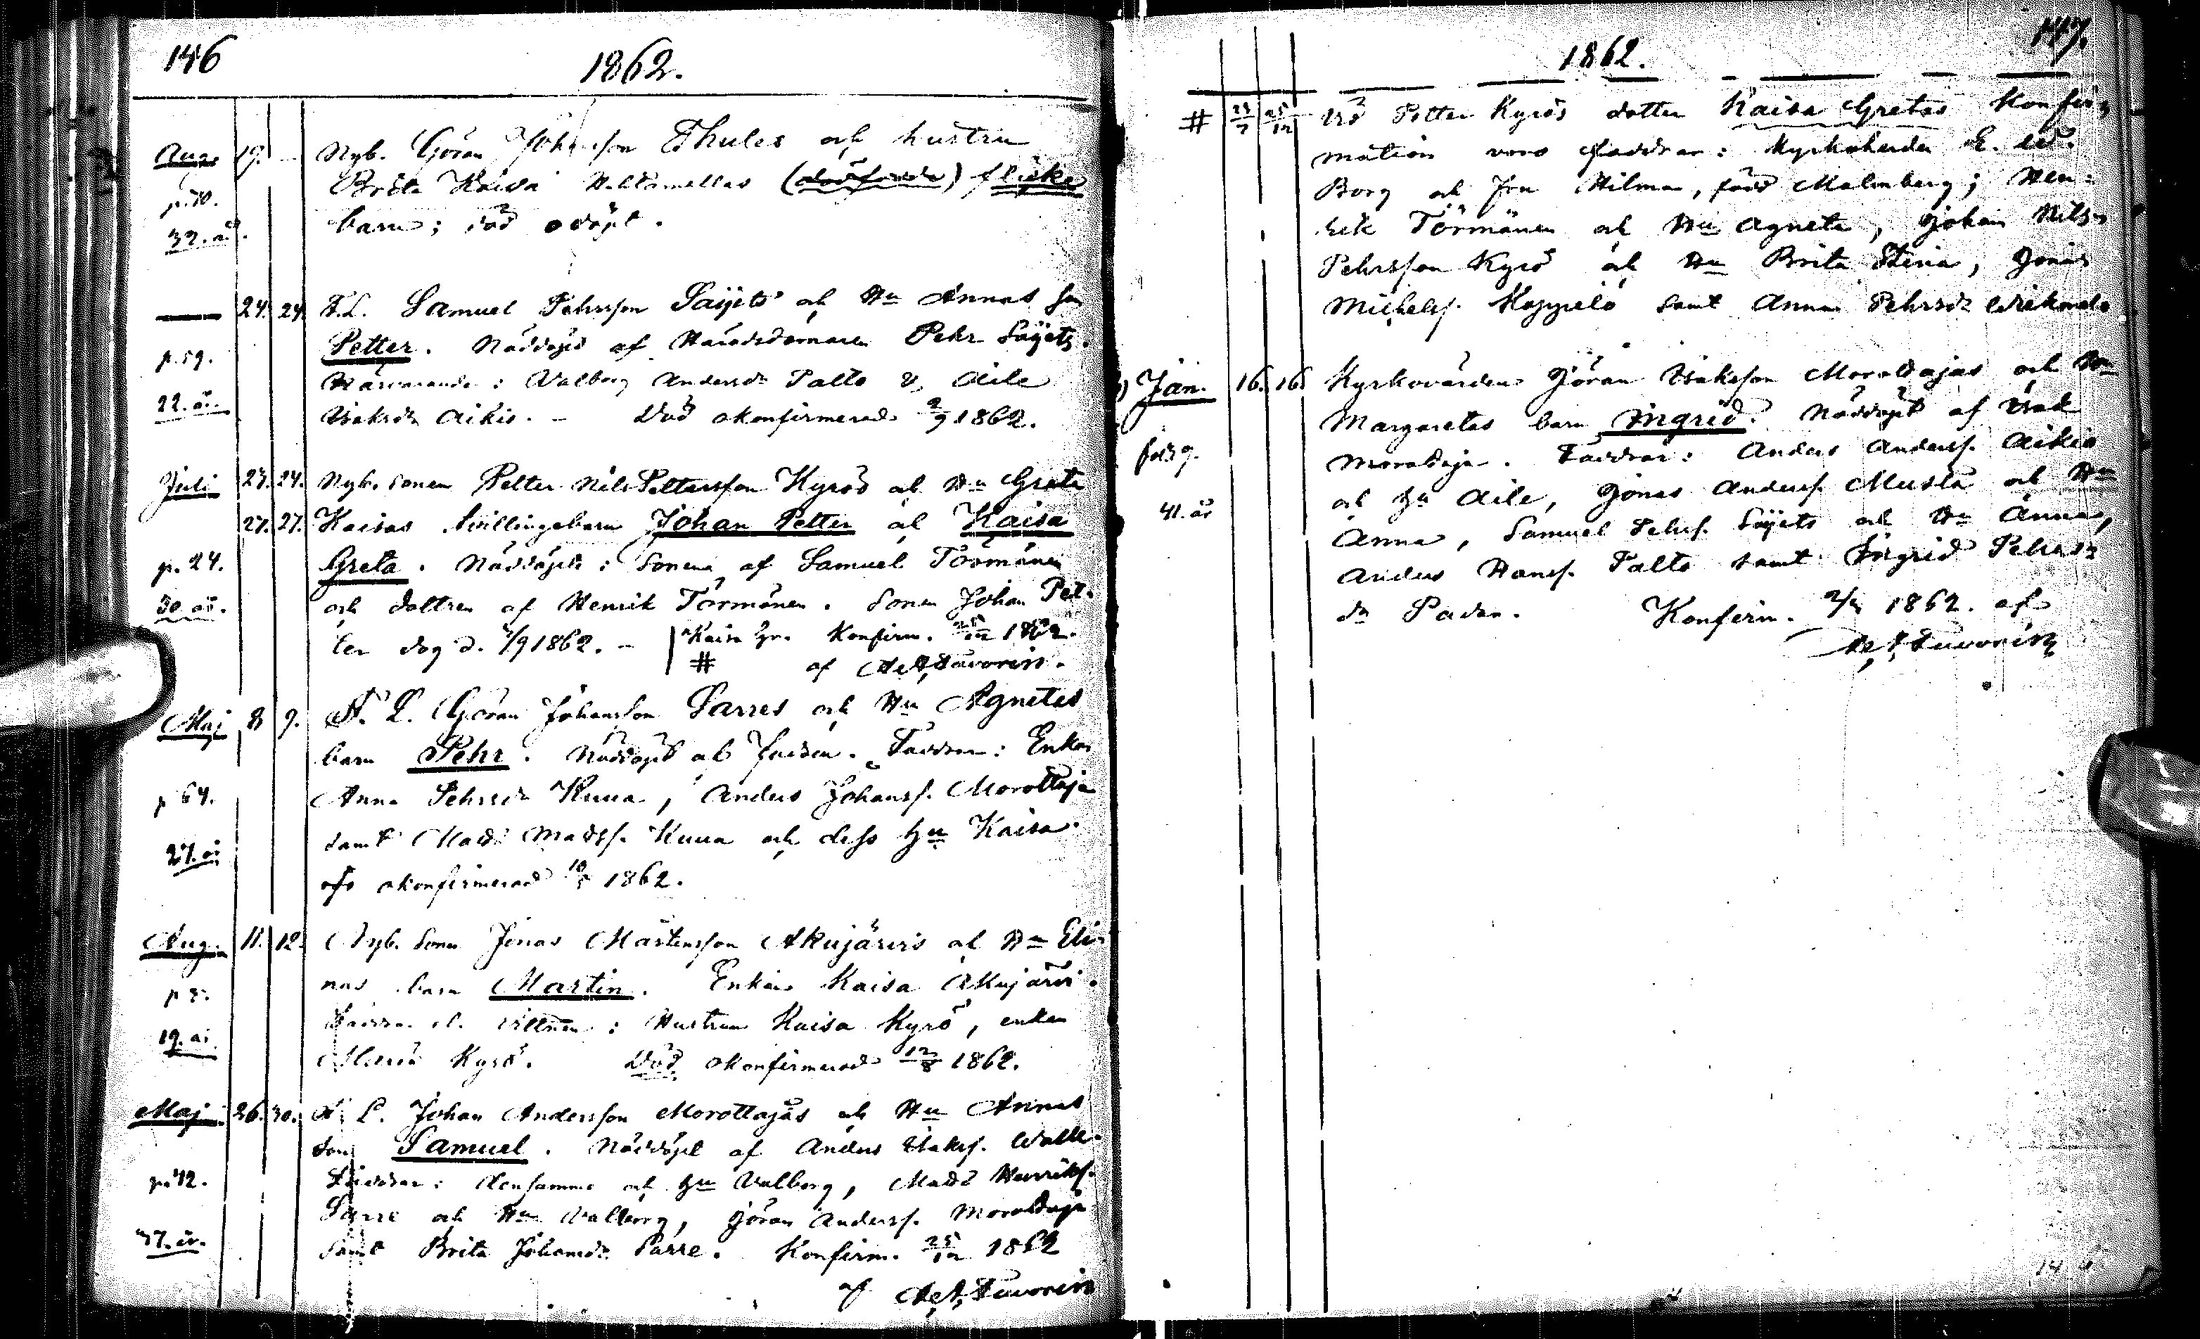 146
1862.
Aug. 19. Nyb. Göran Johansson Thules och hustru
p. 70. Brita Kaisa (dödfödde) flicke
32. år. barn; död odöpt.
24. 24. F.L. Samuel Pehrsson Säyets och Hu Annas son
Petter. Nöddöpt af Häradsdomaren Pehr Säyets.
p. 59. Närvarande: Valborg Andersdr Palto o, Aile
22. år. Isaksdr Aikio. – Död okonfirmerad 2/9 1862.
Juli 23. 24. Nyb. sonen Petter Nils Pettersson Kyrös och Hu Greta
27. 27. Kaisas tvillingabarn Johan Petter och Kaisa
p. 24. Greta. Nöddöpte: Sonen af Samuel Törmänen
30. år. och dottren af Henrik Törmänen. Sonen Johan Pet-
ter dog d. /9 1862. – Kaisa Gr. Konfirm. 25/12 1862.
# af
Maj 8 9. F. L. Göran Johansson Sarres och Hu Agnetas
barn Pehr. Nöddöpt af fadren. Faddrar: Enkan
p 64. Anna Pehrsdr Kuua, Anders Johanss. Morottaja
27. år samt Mads Madss. Kuua och dess Hu Kaisa
okonfirmerad 1862.
Aug. 11. 12. Nyb. Sonen Jonas Mårtensson Akujärvis och Hu Eli-
nas barn Martin. Enkan Kaisa Akujärvi.
p 5. Faddrar el. vittnen: Hustrun Kaisa Kyrö, enkan
19. år. Maria Kyrö. Död okonfirmerad 12/8 1862.
Maj 26. 30. F. L. Johan Andersson Morottajas och Hu Annas
son Samuel. Nöddöpt af Anders Isakss. Valle.
p. 42. Faddrar: densamme och Hu Valborg, Mads Henrikss.
Sarre och Hu Valborg, Göran Anderss. Morottaja
37. år. samt Brita Johansdr Sarre. Konfirm. 25/12 1862
af
147.
1862.
# 23/7 25/12 Vid Petter Kyrös dotter Kaisa Gretas Konfir-
mation voro faddrar: Kyrkoherden E. W.
Borg och Fru Hilma, född Malmberg; Hen-
rik Törmänen och Hu Agneta, Johan Nils
Pehrsson Kyrö och Hu Brita Stina, Jonas
Michelss. Koppelo samt Anna Pehrsdr
Jan. 16. 16. Kyrkovärden Göran Isaksson Morottajas och Hu
Margaretas barn Ingrid. Nöddöpt af Isak
fol 39. Morottaja. Faddrar: Anders Anderss. Aikio
och Hu Aile, Jonas Anderss. Musta och Hu
41. år Anna, Samuel Pehrs. Säyets och Hu Anna,
Anders Hanss. Palto samt Ingrid Pehrs-
dr Padar. Konfirm. 1862. af